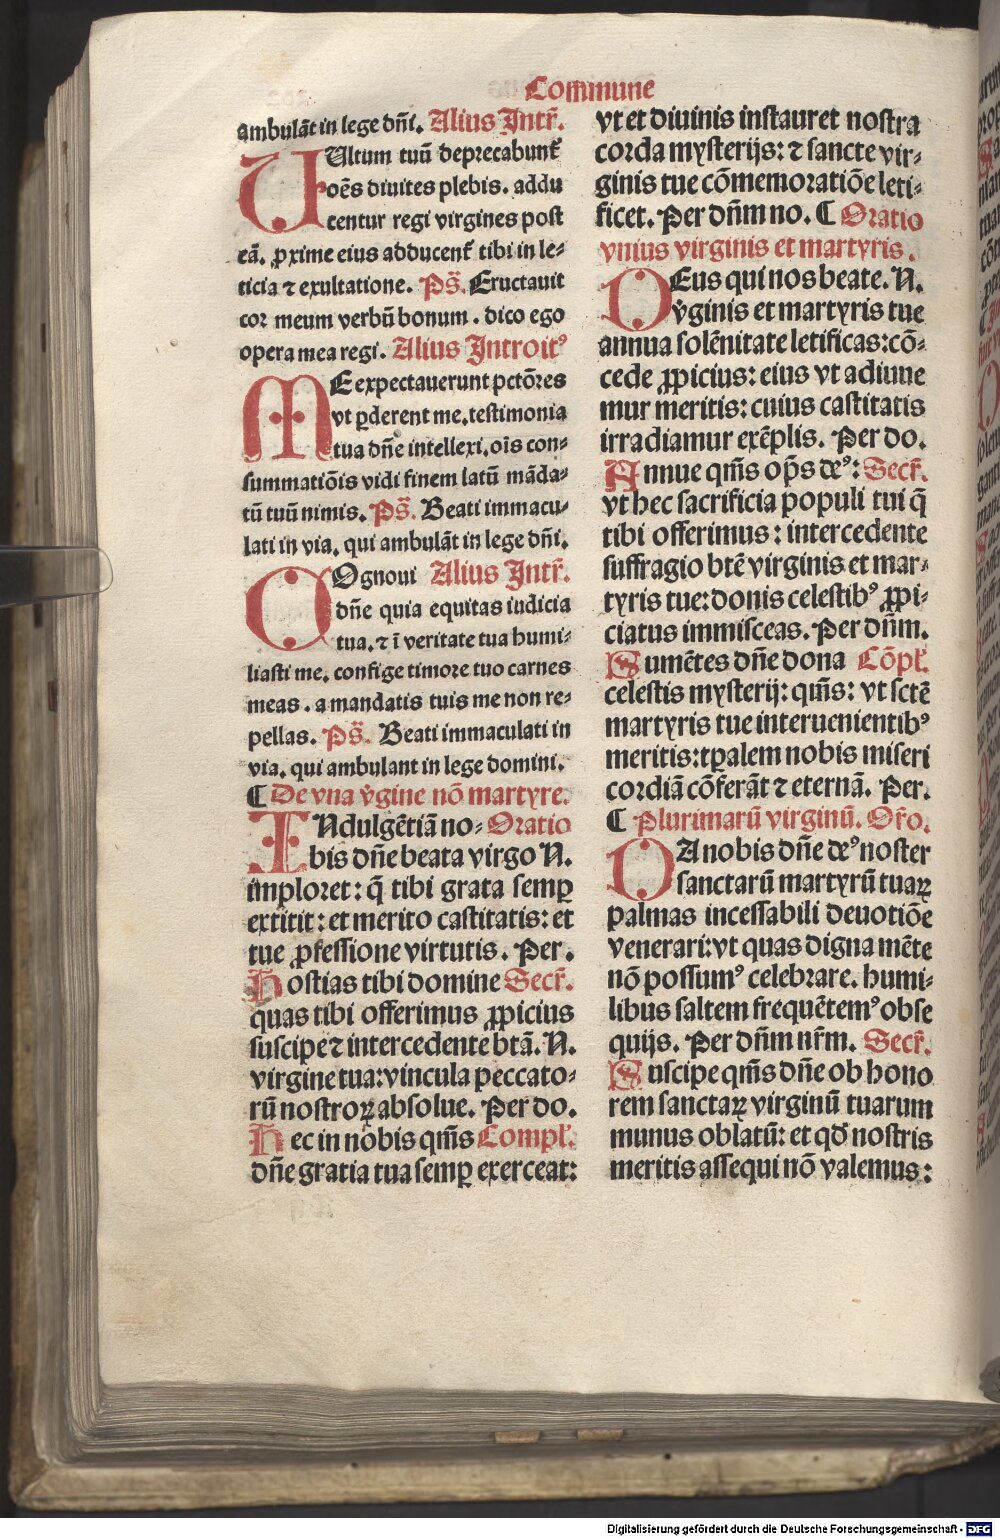 Commune
ambulāt in lege dn̄i. Alius Intr̄.
VUltum tuū deprecabunt᷑
oēs diuites plebis. addu
centur regi virgines post
eā. ꝓxime eius adducent᷑ tibi in le⸗
ticia ⁊ exultatione. Ps̄. Eructauit
cor meum verbū bonum. dico ego
opera mea regi. Alius Introitꝰ
ME expectauerunt pctōres
vt ꝑderent me. testimonia
tua dn̄e intellexi. oīs con⸗
summatiōis vidi finem latū māda⸗
tū tuū nimis. Ps̄. Beati immacu⸗
lati in via. qui ambulāt in lege dn̄i.
COgnoui Alius Intr̄.
dn̄e quia equitas iudicia
tua. ⁊ ī veritate tua humi⸗
liasti me. confige timore tuo carnes
meas. a mandatis tuis me non re⸗
pellas. Ps̄. Beati immaculati in
via. qui ambulant in lege domini.
¶ De vna v̓gine nō martyre.
INdulgētiā no⸗ Oratio
bis dn̄e beata virgo N.
imploret: q̄ tibi grata semꝑ
extitit: et merito castitatis: et
tue ꝓfessione virtutis. Per.
Hostias tibi domine Secr̄.
quas tibi offerimus ꝓpicius
suscipe ⁊ intercedente btā. N.
virgine tua: vincula peccato⸗
rū nostroꝝ absolue. Per do.
Hec in nobis qm̄s Compl̄.
dn̄e gratia tua semꝑ exerceat:
vt et diuinis instauret nostra
corda mysterijs: ⁊ sancte vir⸗
ginis tue cōmemoratiōe leti⸗
ficet. Per dn̄m no. ¶ Oratio
vnius virginis et martyris.
DEus qui nos beate. N.
v̓ginis et martyris tue
annua solēnitate letificas: cō⸗
cede ꝓpicius: eius vt adiuue
mur meritis: cuius castitatis
irradiamur exēplis. Per do.
Annue qm̄s op̄s deꝰ: Secr̄.
vt hec sacrificia populi tui q̄
tibi offerimus: intercedente
suffragio btē virginis et mar⸗
tyris tue: donis celestibꝰ ꝓpi⸗
ciatus immisceas. Per dn̄m.
Sumētes dn̄e dona Cōpl̄.
celestis mysterij: qm̄s: vt sctē
martyris tue interuenientibꝰ
meritis: tꝑalem nobis miseri
cordiā cōferāt ⁊ eternā. Per.
¶ Plurimarū virginū. Or̄o.
DA nobis dn̄e deꝰ noster
sanctarū martyrū tuaꝝ
palmas incessabili deuotiōe
venerari: vt quas digna mēte
nō possumꝰ celebrare. humi⸗
libus saltem frequētemꝰ obse
quijs. Per dn̄m nr̄m. Secr̄.
Suscipe qm̄s dn̄e ob hono
rem sanctaꝝ virginū tuarum
munus oblatū: et qđ nostris
meritis assequi nō valemus:
Digitalisierung gefördert durch die Deutsche Forschungsgemeinschaft - DFG